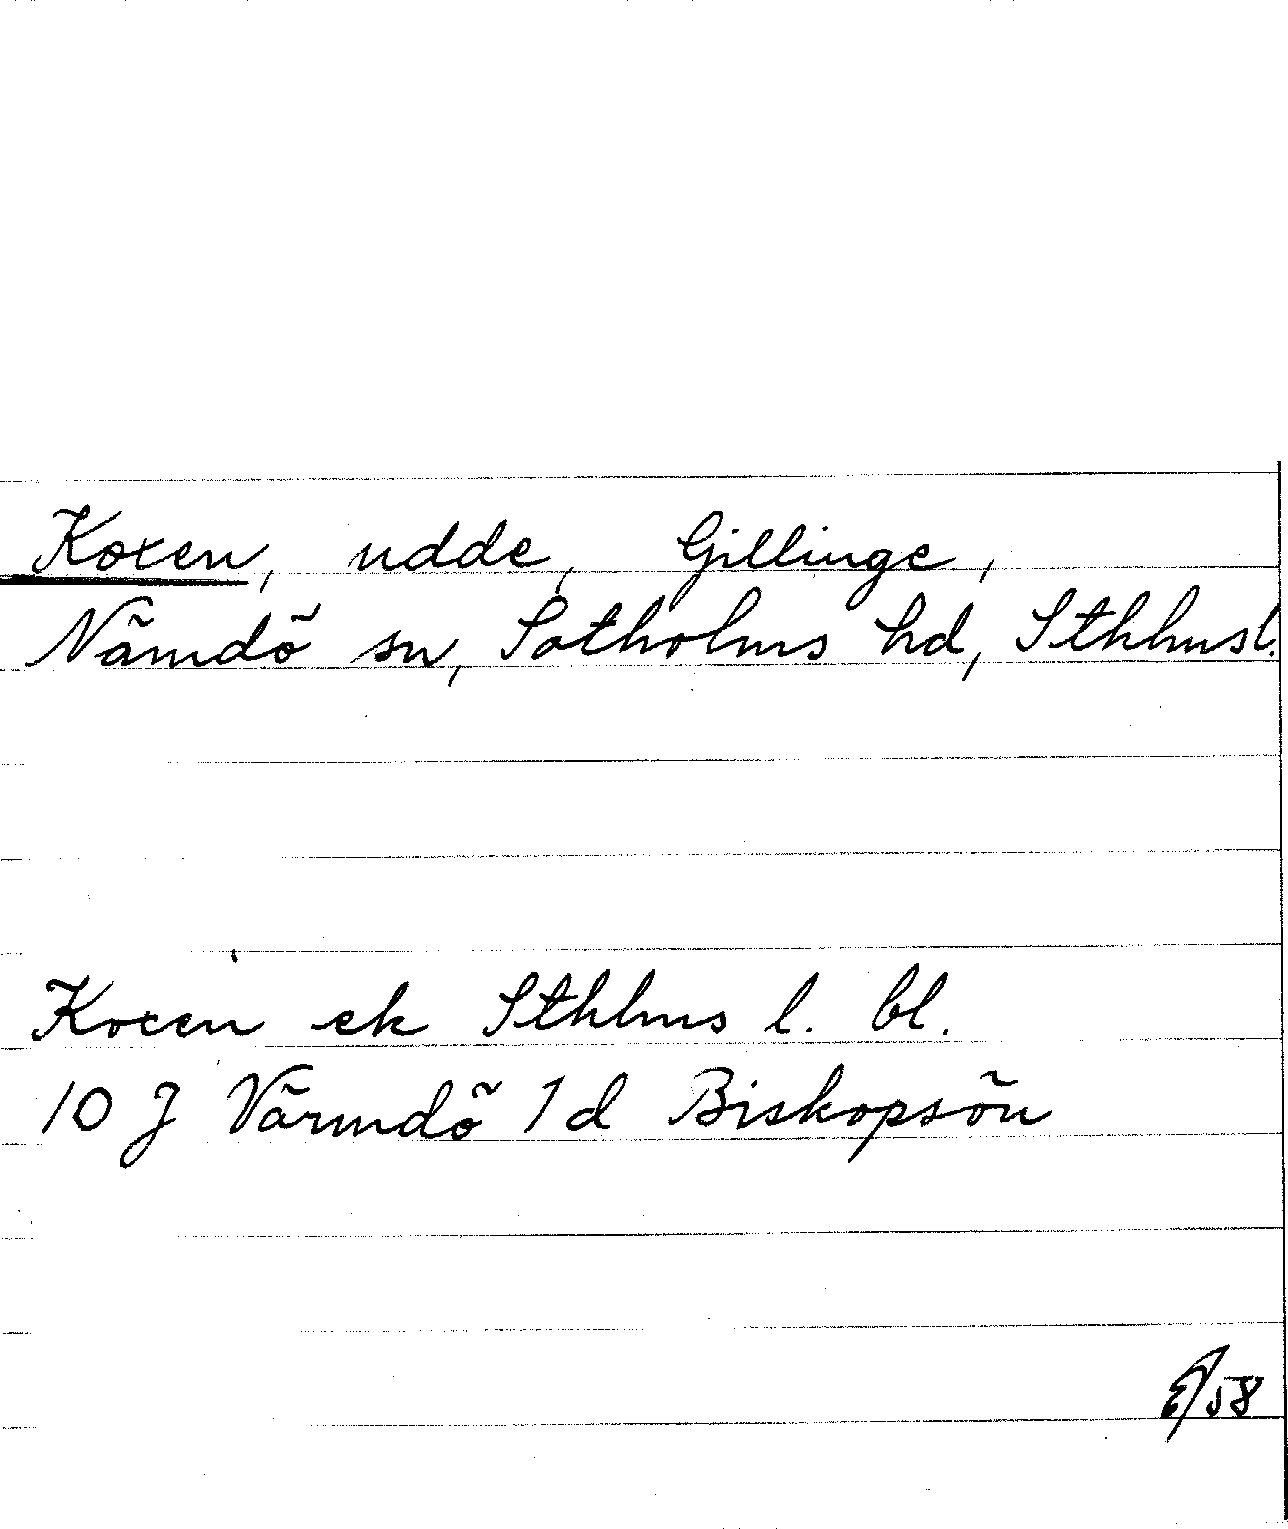 Koxen, udde, Gillinge,
Nämdö sn, Sotholms hd, Sthlmsl.
Koxen ek Sthlms l. bl.
10 J Värmdö 1 d Biskopsön
/58